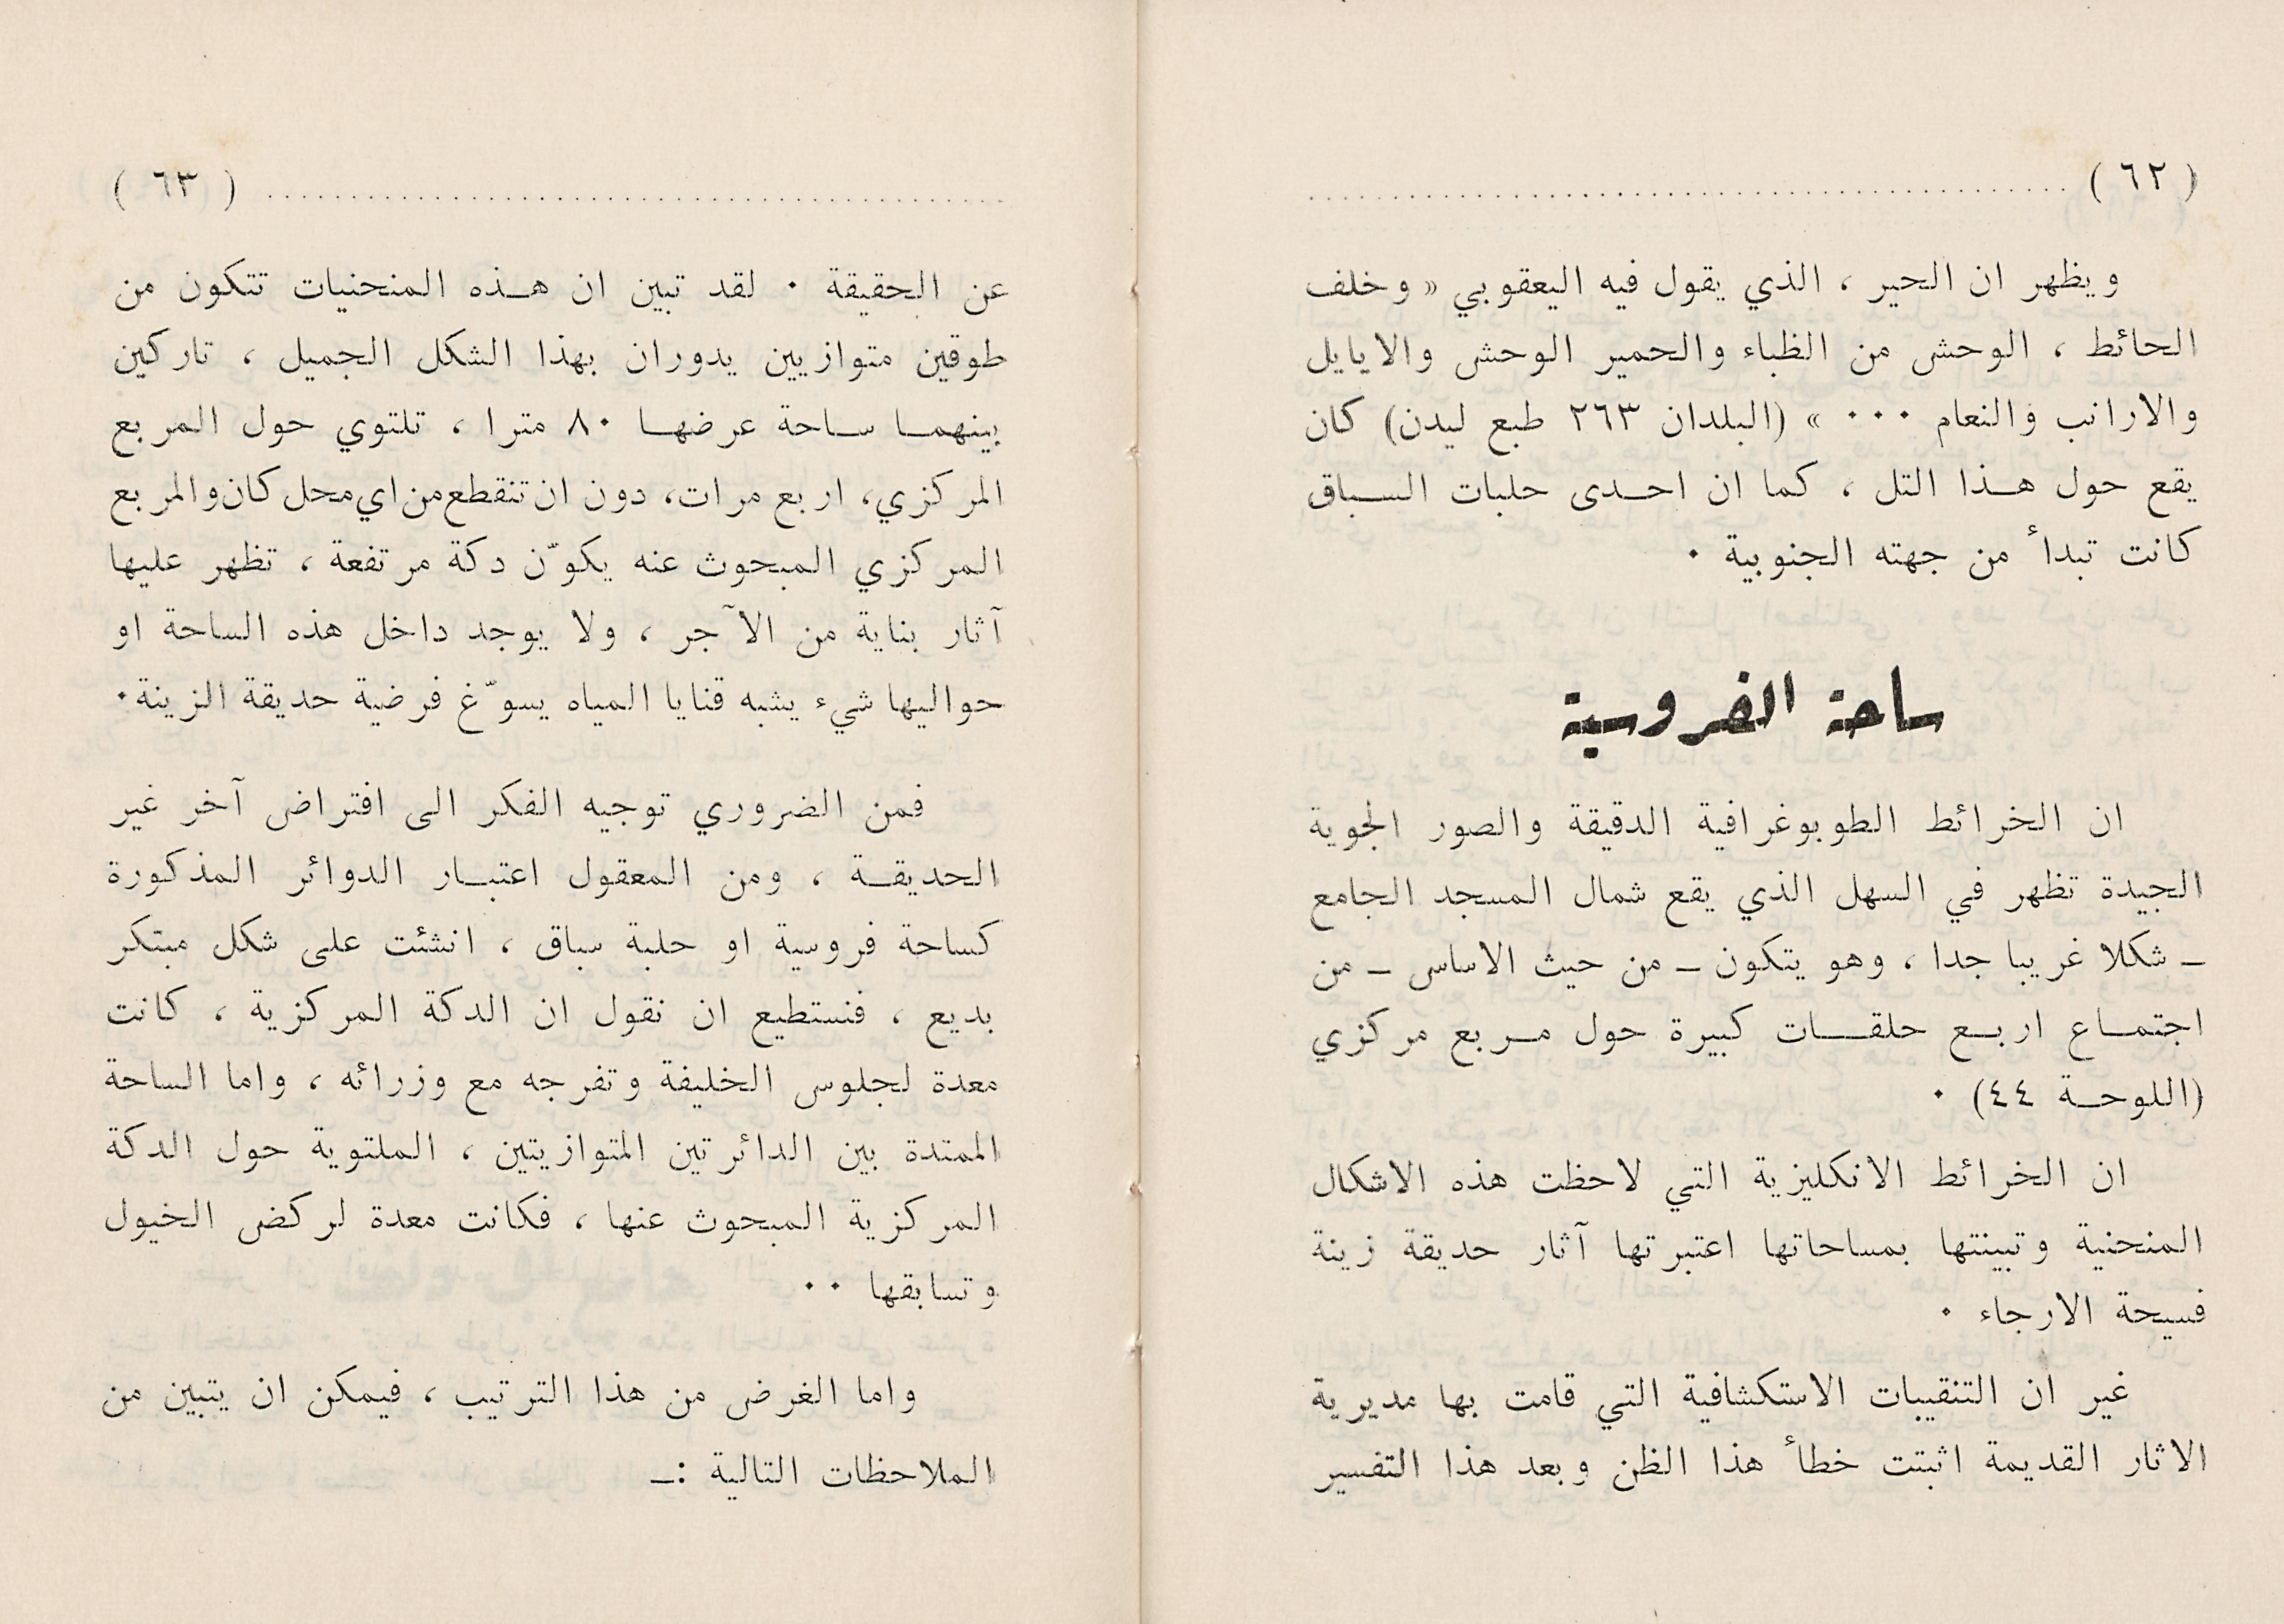 ( ٦٢ ) ........................................
ويظهر ان الحير ، الذي يقول فيه اليعقوبي « وخلف
الحائط ، الوحش من الظباء والحمير الوحش والايايل
والارانب والنعام ٠٠٠ » (البلدان ٢٦٣ طبع ليدن) كان
يقع حول هـذا التل ، كما ان احـدى حلبات السـباق
كانت تبدأ من جهته الجنوبية ٠
ساحة الفروسية
ان الخرائط الطوبوغرافية الدقيقة والصور الجوية
الجيدة تظهر في السهل الذي يقع شمال المسجد الجامع
ـ شكلا غريبا جدا ، وهو يتكون ـ من حيث الاساس ـ من
اجتمـاع اربـع حلقـات كبيرة حول مـربع مركزي
(اللوحـة ٤٤) ٠
ان الخرائط الانكليزية التي لاحظت هذه الاشكال
المنحنية وتبينتها بمساحاتها اعتبرتها آثار حديقة زينة
فسيحة الارجاء ٠
غير ان التنقيبات الاستكشافية التي قامت بها مديرية
الاثار القديمة اثبتت خطأ هذا الظن وبعد هذا التفسير
........................................ ( ٦٣ )
عن الحقيقة ٠ لقد تبين ان هـذه المنحنيات تتكون من
طوقين متوازيين يدوران بهذا الشكل الجميل ، تاركين
بينهمـا سـاحة عرضهـا ٨٠ مترا ، تلتوي حول المربع
المركزي، اربع مرات، دون ان تنقطع من اي محل كان والمربع
المركزي المبحوث عنه يكوّن دكة مرتفعة ، تظهر عليها
آثار بناية من الآجر ، ولا يوجد داخل هذه الساحة او
حواليها شيء يشبه قنايا المياه يسوّغ فرضية حديقة الزينة٠
فمن الضروري توجيه الفكر الى افتراض آخر غير
الحديقـة ، ومن المعقول اعتبـار الدوائر المذكورة
كساحة فروسية او حلبة سباق ، انشئت على شكل مبتكر
بديع ، فنستطيع ان نقول ان الدكة المركزية ، كانت
معدة لجلوس الخليفة وتفرجه مع وزرائه ، واما الساحة
الممتدة بين الدائرتين المتوازيتين ، الملتوية حول الدكة
المركزية المبحوث عنها ، فكانت معدة لركض الخيول
وتسابقها ٠٠
واما الغرض من هذا الترتيب ، فيمكن ان يتبين من
الملاحظات التالية :ـ